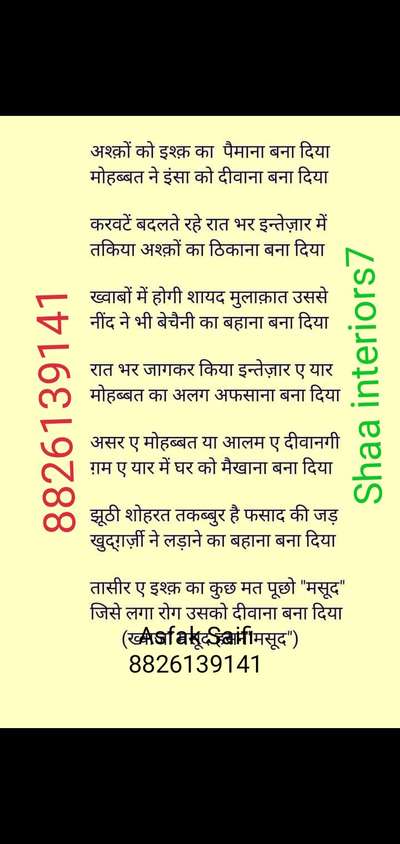 अश्क़ों को इश्क़ का पैमाना बना दिया
मोहब्बत ने इंसा को दीवाना बना दिया
करवटें बदलते रहे रात भर इन्तेज़ार में
तकिया अश्क़ों का ठिकाना बना दिया
ख्वाबों में होगी शायद मुलाक़ात उससे
नींद ने भी बेचैनी का बहाना बना दिया
रात भर जागकर किया इन्तेज़ार ए यार
मोहब्बत का अलग अफसाना बना दिया
असर ए मोहब्बत या आलम ए दीवानगी
ग़म ए यार में घर को मैखाना बना दिया
झूठी शोहरत तकब्बुर है फसाद की जड़
खुद्ग़र्ज़ी ने लड़ाने का बहाना बना दिया
तासीर ए इश्क़ का कुछ मत पूछो "मसूद"
जिसे लगा रोग उसको दीवाना बना दिया
मसूद")
Asfak Saifi
8826139141
8826139141
Shaa interiors7